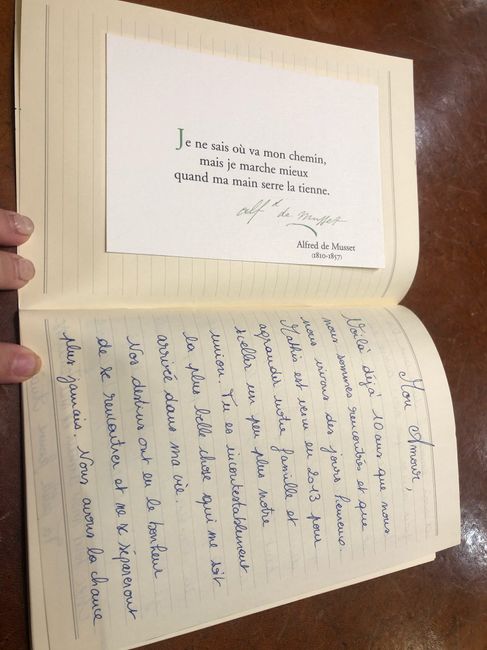 Je ne sais où va mon chemin,
mais je marche mieux
quand ma main serre la tienne.
Alf d de Musset
Alfred de Musset
(1810-1857)
Mon Amour,
Voilà déjà 10 ans que nous
nous sommes rencontrés et que
nous vivons des jours heureux.
Mathis est venu en 2013 pour
agrandir notre famille et
sceller un peu plus notre
union. Tu es incontestablement
la plus belle chose qui me soit
arrivée dans ma vie.
Nos destins ont eu le bonheur
de se rencontrer et ne se sépareront
plus jamais. Nous avons la chance